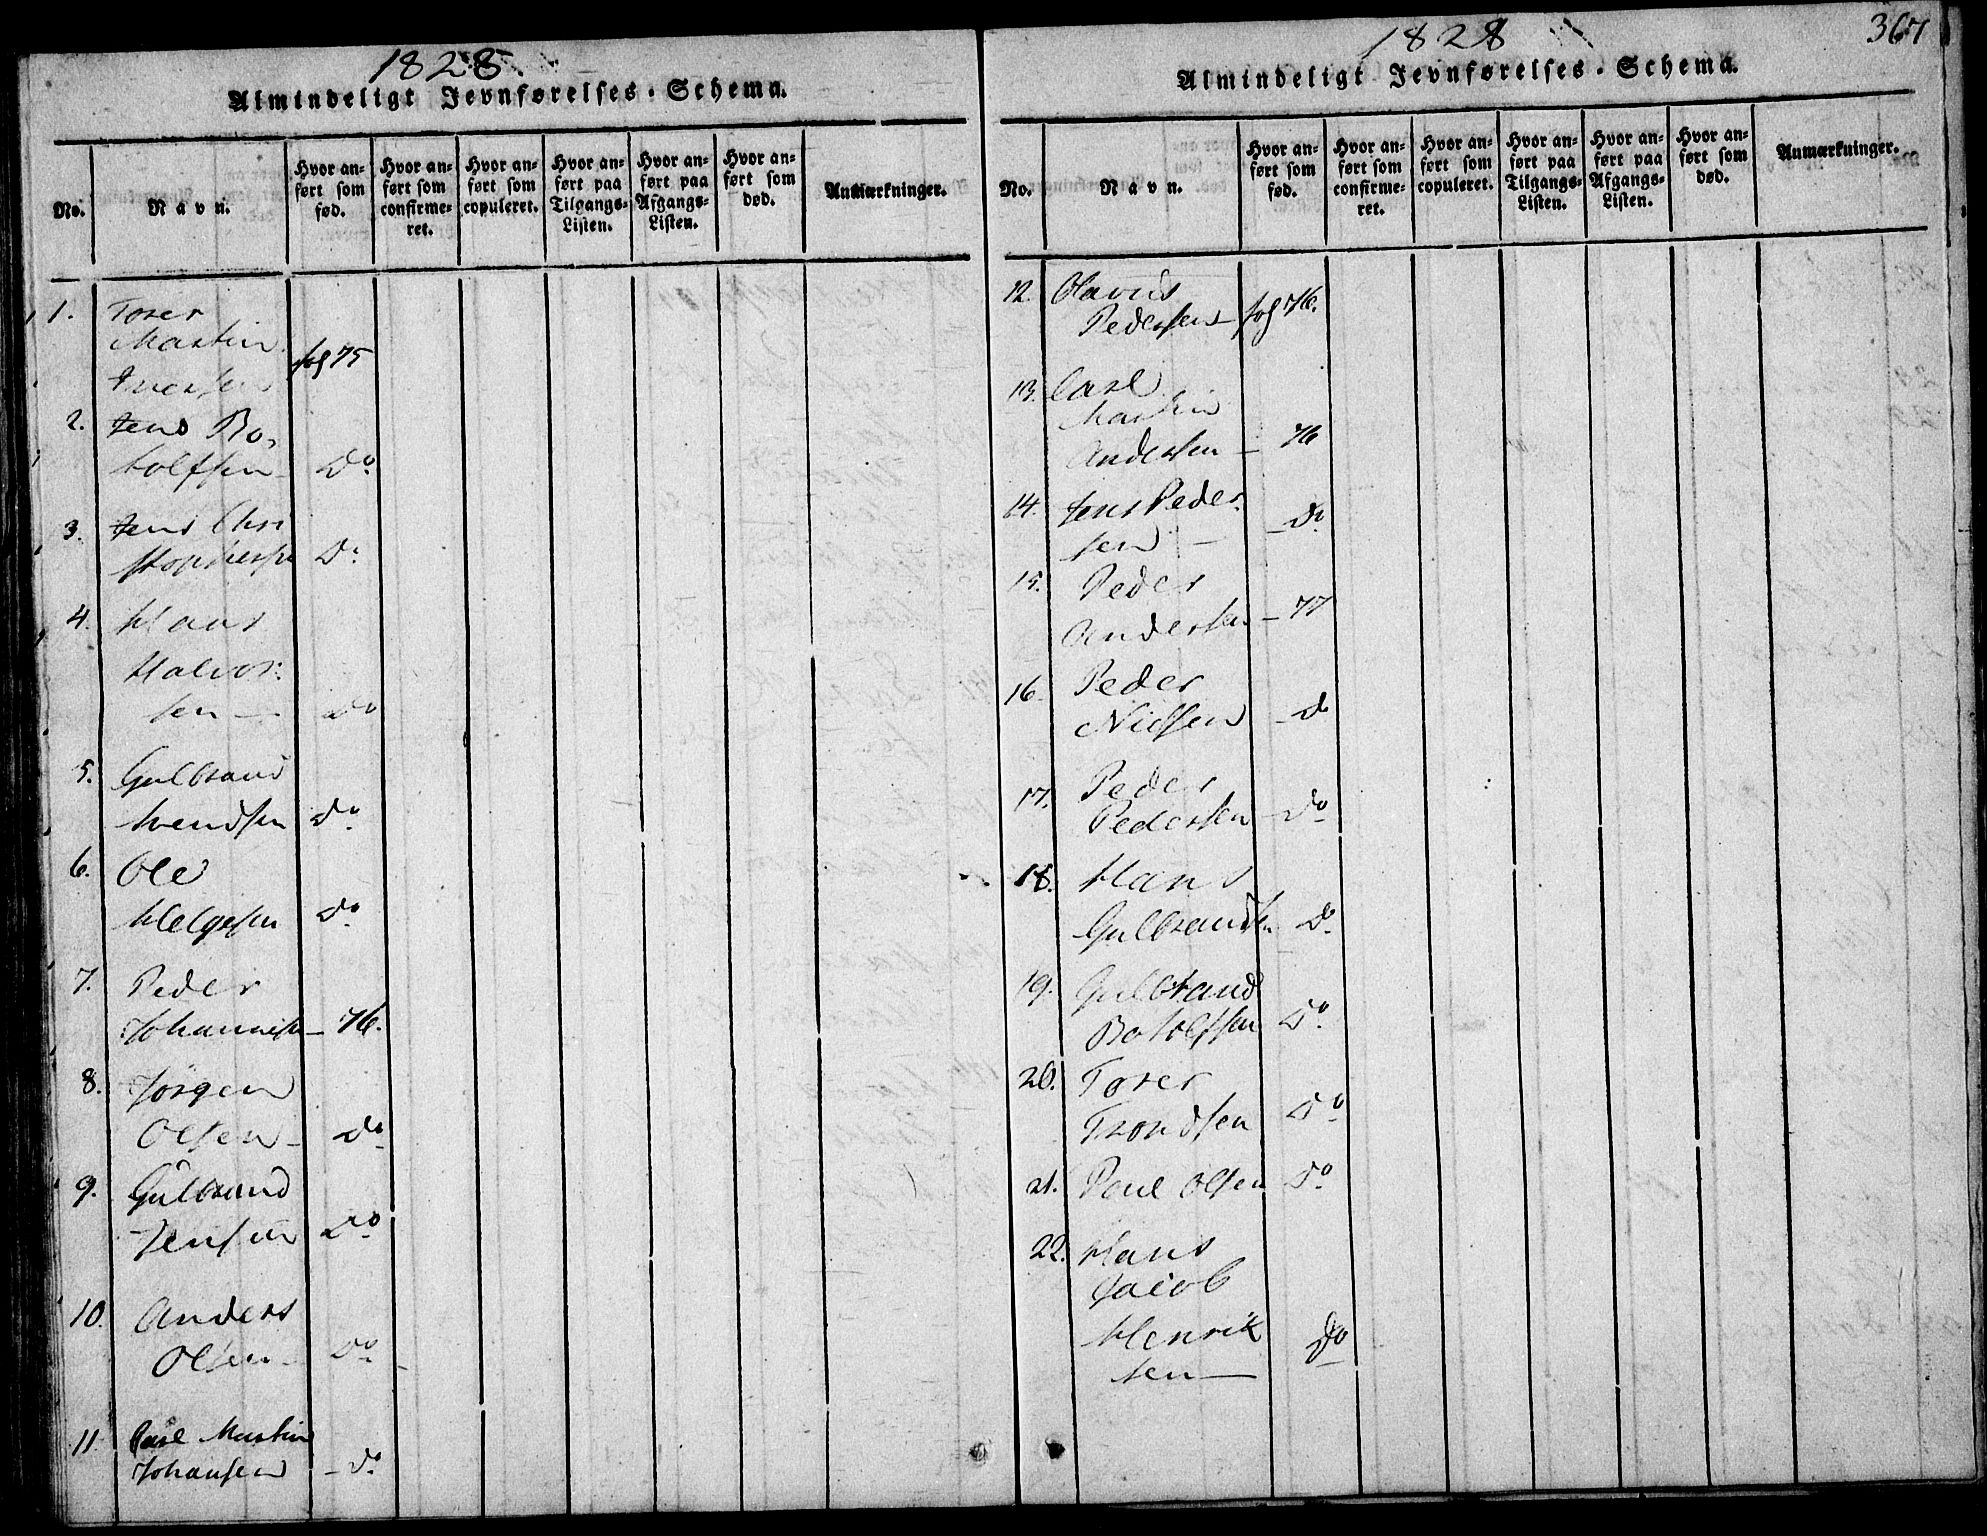 1828.
Almindeligt Jevnførelses-Schema.
No.
Navn.
Hvor an-
ført som
fød.
Hvor an-
ført som
confirme-
ret.
Hvor an-
ført som
copuleret.
Hvor an-
ført paa
Tilgangs-
Listen.
Hvor an-
ført paa
Afgangs-
Listen.
Hvor an-
ført som
død.
Anmærkninger.
1. Torer
Martin
Iversen fol 75
2. Jens Bo-
tolfsen Do
3. Jens Chri
stophersen Do
4. Hans
Halvor-
sen — Do
5. Gulbrand
Svendsen Do
6. Ole
Helgesen Do
7. Peder
Johannesen — 76.
8. Jørgen
Olsen — Do
9. Gulbrand
Jensen Do
10. Anders
Olsen — Do
11 Carl Martin
Johansen — Do
1828
367
Almindeligt Jevnførelses-Schema.
No.
Navn.
Hvor an-
ført som
fød.
Hvor an-
ført som
confirme-
ret.
Hvor an-
ført som
copuleret.
Hvor an-
ført paa
Tilgangs-
Listen.
Hvor an-
ført paa
Afgangs-
Listen.
Hvor an-
ført som
død.
Anmærkninger.
12. Olavus
Pedersen — fol 76.
13. Carl
Martin
Andersen — 76
14. Jens Peder-
sen — Do
15. Peder
Andersen — 77
16. Peder
Nielsen — do
17. Peder
Pedersen — Do
18. Hans
Gulbrandsen Do
19. Gulbrand
Botolfsen Do
20. Torer
Trondsen Do
21. Poul Olsen Do
22. Hans
Jacob
Henrik
sen — Do